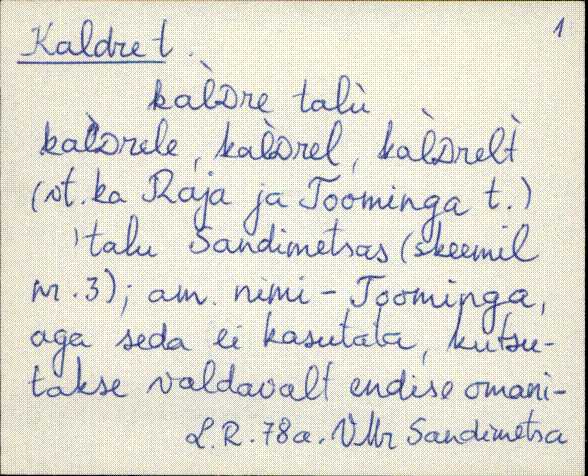 1
Kaldre t.
kàl̀dre talù
kàl̀drele, kàl̀drel, kàl̀drelt̀
(vt. ka Raja ja Toominga t.)
'talu Sandimetsas (skeemil
nr. 3); am. nimi - Toominga,
aga seda ei kasutata, kutsu-
takse valdavalt endise omani-
L.R. 78a. VMr Sandimetsa